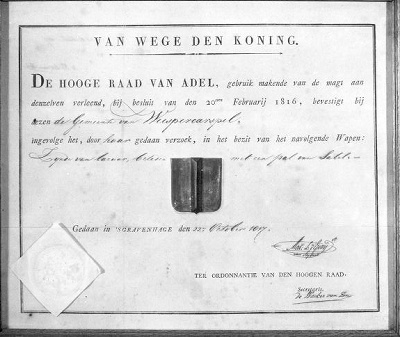 VAN WEGE DEN KONING.
DE HOOGE RAAD VAN ADEL, gebruik makende van de magt aan
denzelven verleend, bij besluit van den 20sten Februarij 1816, bevestigt bij
dezen de Gemeente van Weespercarspel,
ingevolge het, door haar gedaan verzoek, in het bezit van het navolgende Wapen:
van lazuur, met een pal van Sabel.
Gedaan in 'SGRAVENHAGE den 22e October 1817.
TER ORDONNANTIE VAN DEN HOOGEN RAAD.